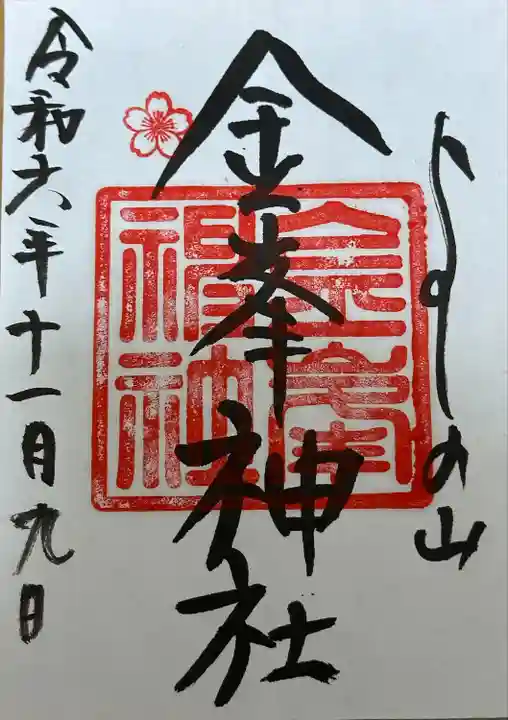 よしの山
金峯神社
令和六年十一月九日